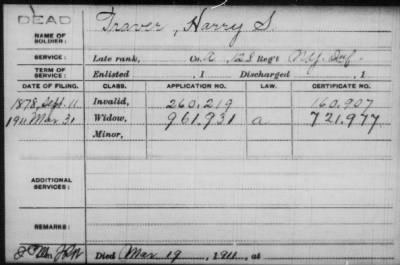 DEAD
NAME OF SOLDIER: Traver, Harry S.
SERVICE: Late rank, Co. A, 128 Reg't N.Y. Inf.
TERM OF SERVICE: Enlisted , 1 Discharged , 1
DATE OF FILING. CLASS. APPLICATION NO. LAW. CERTIFICATE NO.
1878, Sept. 11 Invalid, 260.219 160.907
1911 Mar. 31 Widow, 961.931 a 721.977
Minor,
ADDITIONAL SERVICES:
REMARKS:
Died Mar 19, 1911, at